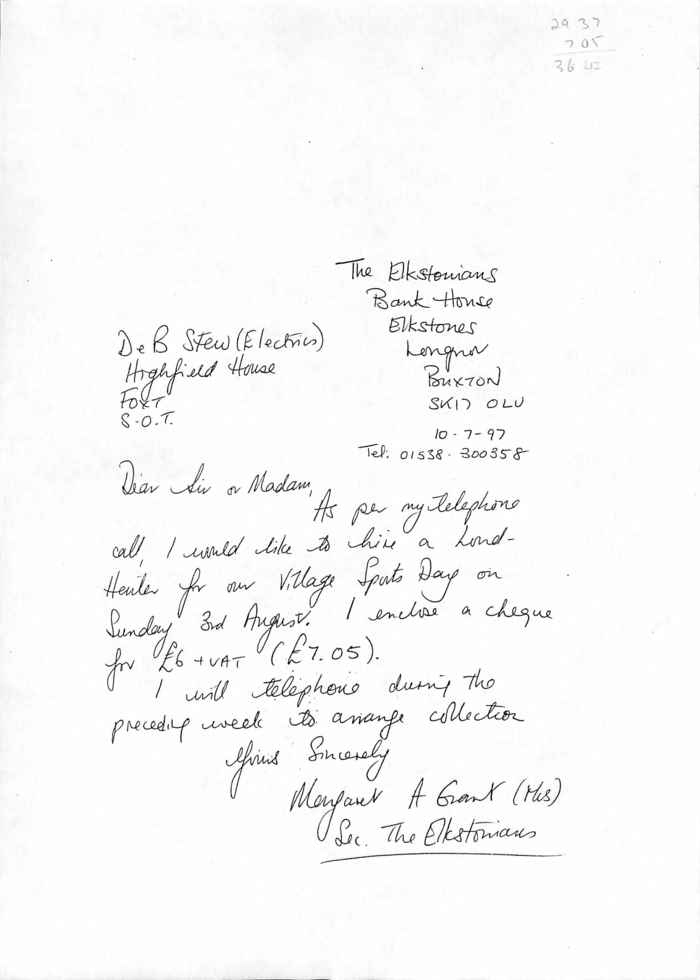 29 37
7.05
36 42
The Elkstonians
Bank House
Elkstones
Longnor
BUXTON
SK17 0LU
10-7-97
Tel. 01538-300358
DeB Stew (Electrics)
Highfield House
FOXT
S.O.T.
Dear Sir or Madam,
As per my telephone
call, I would like to hire a Loud-
Heiler for our Village Sports Day on
Sunday 3rd August. I enclose a cheque
for £6 + VAT (£7.05).
I will telephone during the
preceding week to arrange collection
Yours Sincerely
Margaret A Grant (Mrs)
Sec. The Elkstonians